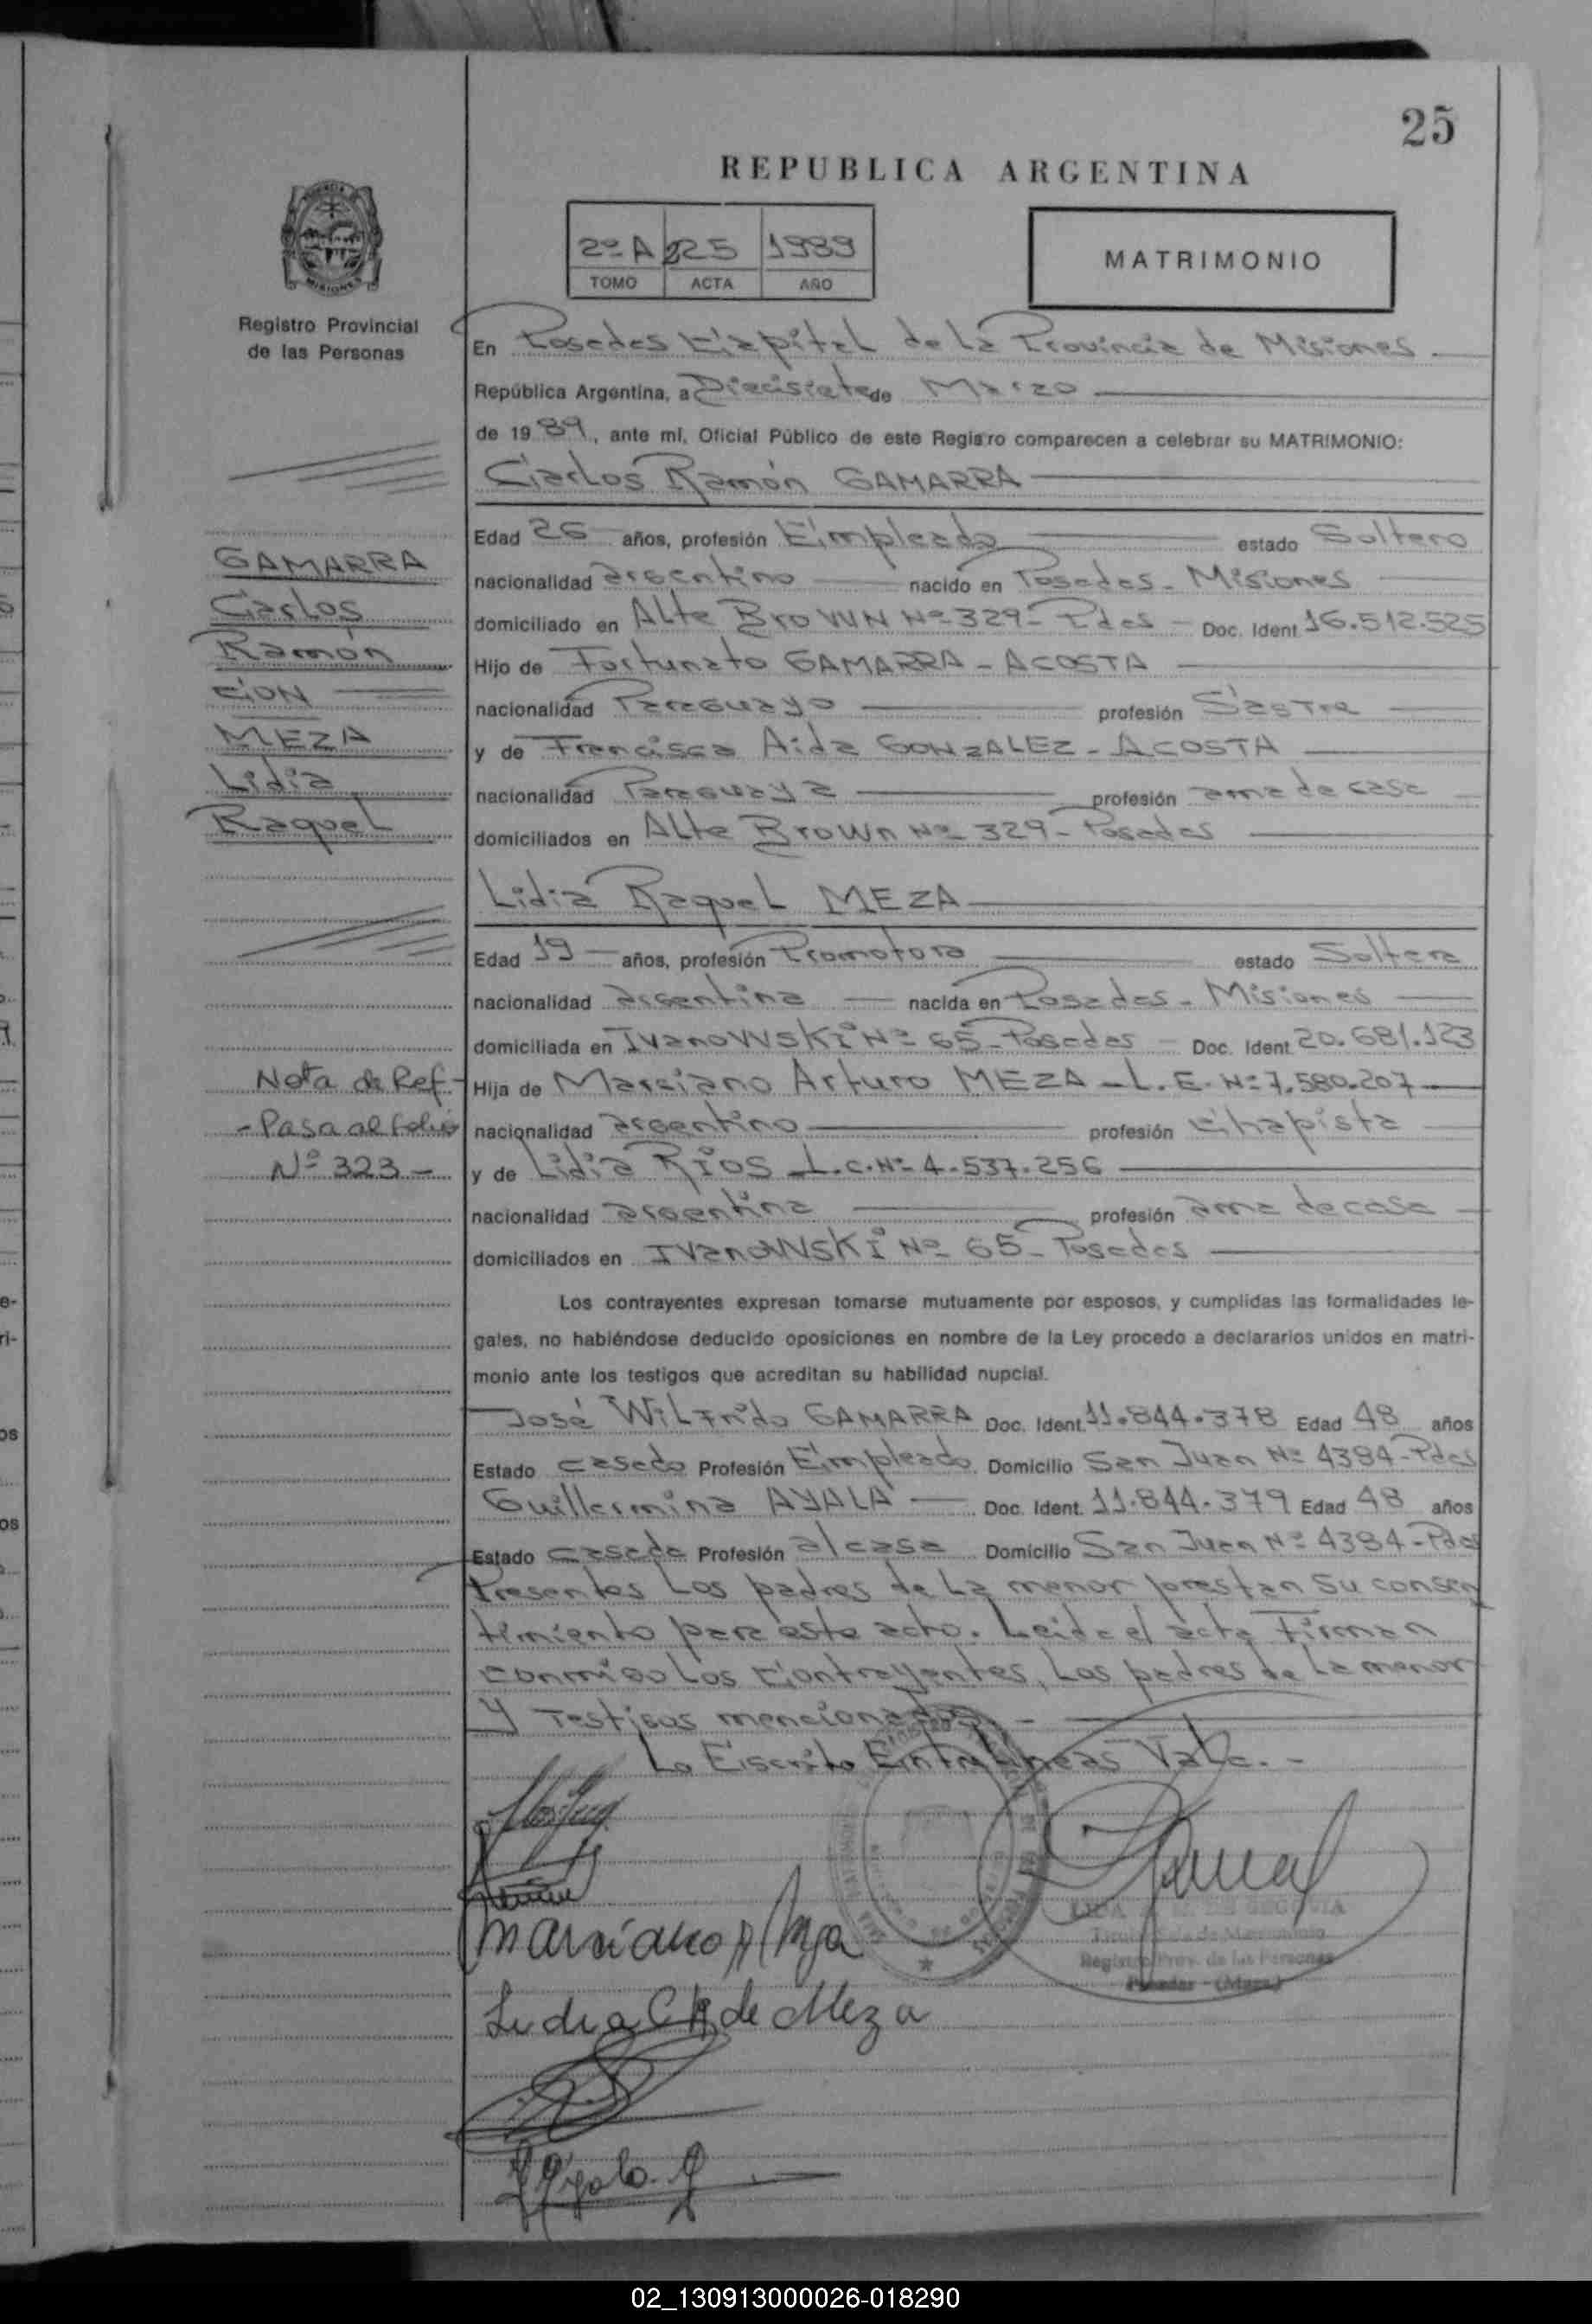 25
REPUBLICA ARGENTINA
2º A 225 1989
TOMO ACTA AÑO
MATRIMONIO
MISIONES
Registro Provincial
de las Personas
En Posadas Capital de la Provincia de Misiones
República Argentina, a Diecisiete de Marzo
de 1989, ante mí, Oficial Público de este Registro comparecen a celebrar su MATRIMONIO:
Carlos Ramón GAMARRA
Edad 26 años, profesión Empleado estado Soltero
nacionalidad argentino nacido en Posadas - Misiones
domiciliado en Alte Brown Nº 329 - Pdas - Doc. Ident 16.512.525
Hijo de Fortunato GAMARRA - ACOSTA
nacionalidad Paraguayo profesión Sastre
y de Francisca Aida GONZALEZ - ACOSTA
nacionalidad Paraguaya profesión ama de casa
domiciliados en Alte Brown Nº 329 - Posadas
GAMARRA
Carlos
Ramón
CON
MEZA
Lidia
Raquel
Lidia Raquel MEZA
Edad 19 años, profesión Promotora estado Soltera
nacionalidad argentina nacida en Posadas - Misiones
domiciliada en IvanoWSKi Nº 65 - Posadas - Doc. Ident 20.681.123
Hija de Marciano Arturo MEZA - L.E. Nº 7.580.207
nacionalidad argentino profesión Chapista
y de Lidia RIOS L.C. Nº 4.537.256
nacionalidad argentina profesión ama de casa
domiciliados en IvanoWSKi Nº 65 - Posadas
Nota de Ref-
- Pasa al folio
Nº 323 -
Los contrayentes expresan tomarse mutuamente por esposos, y cumplidas las formalidades le-
gales, no habiéndose deducido oposiciones en nombre de la Ley procedo a declararlos unidos en matri-
monio ante los testigos que acreditan su habilidad nupcial.
José Wilfrido GAMARRA Doc. Ident. 11.844.378 Edad 48 años
Estado casado Profesión Empleado Domicilio San Juan Nº 4384 - Pdas
Guillermina AYALA Doc. Ident. 11.844.379 Edad 48 años
Estado casada Profesión a/casa Domicilio San Juan Nº 4384 - Pdas
Presentes Los padres de La menor prestan su consen
timiento para este acto. Leida el acta Firman
conmigo Los Contrayentes, Los padres de La menor
y Testigos mencionados. -
Lo Escrito Entrelineas Vale. -
Marciano A Meza
Lidia C R de Meza
DE SEGOVIA
Registro Prov. de las Personas
Posadas - (Mnes.)
02_130913000026-018290